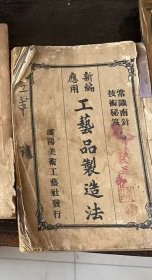 常識南針
技術秘笈
新編
應用
工藝品製造法
瀋陽美術工藝社發行